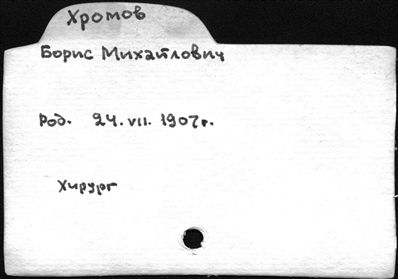 Хромов
Борис Михайлович
Род. 24.VII.1907г.
Хирург